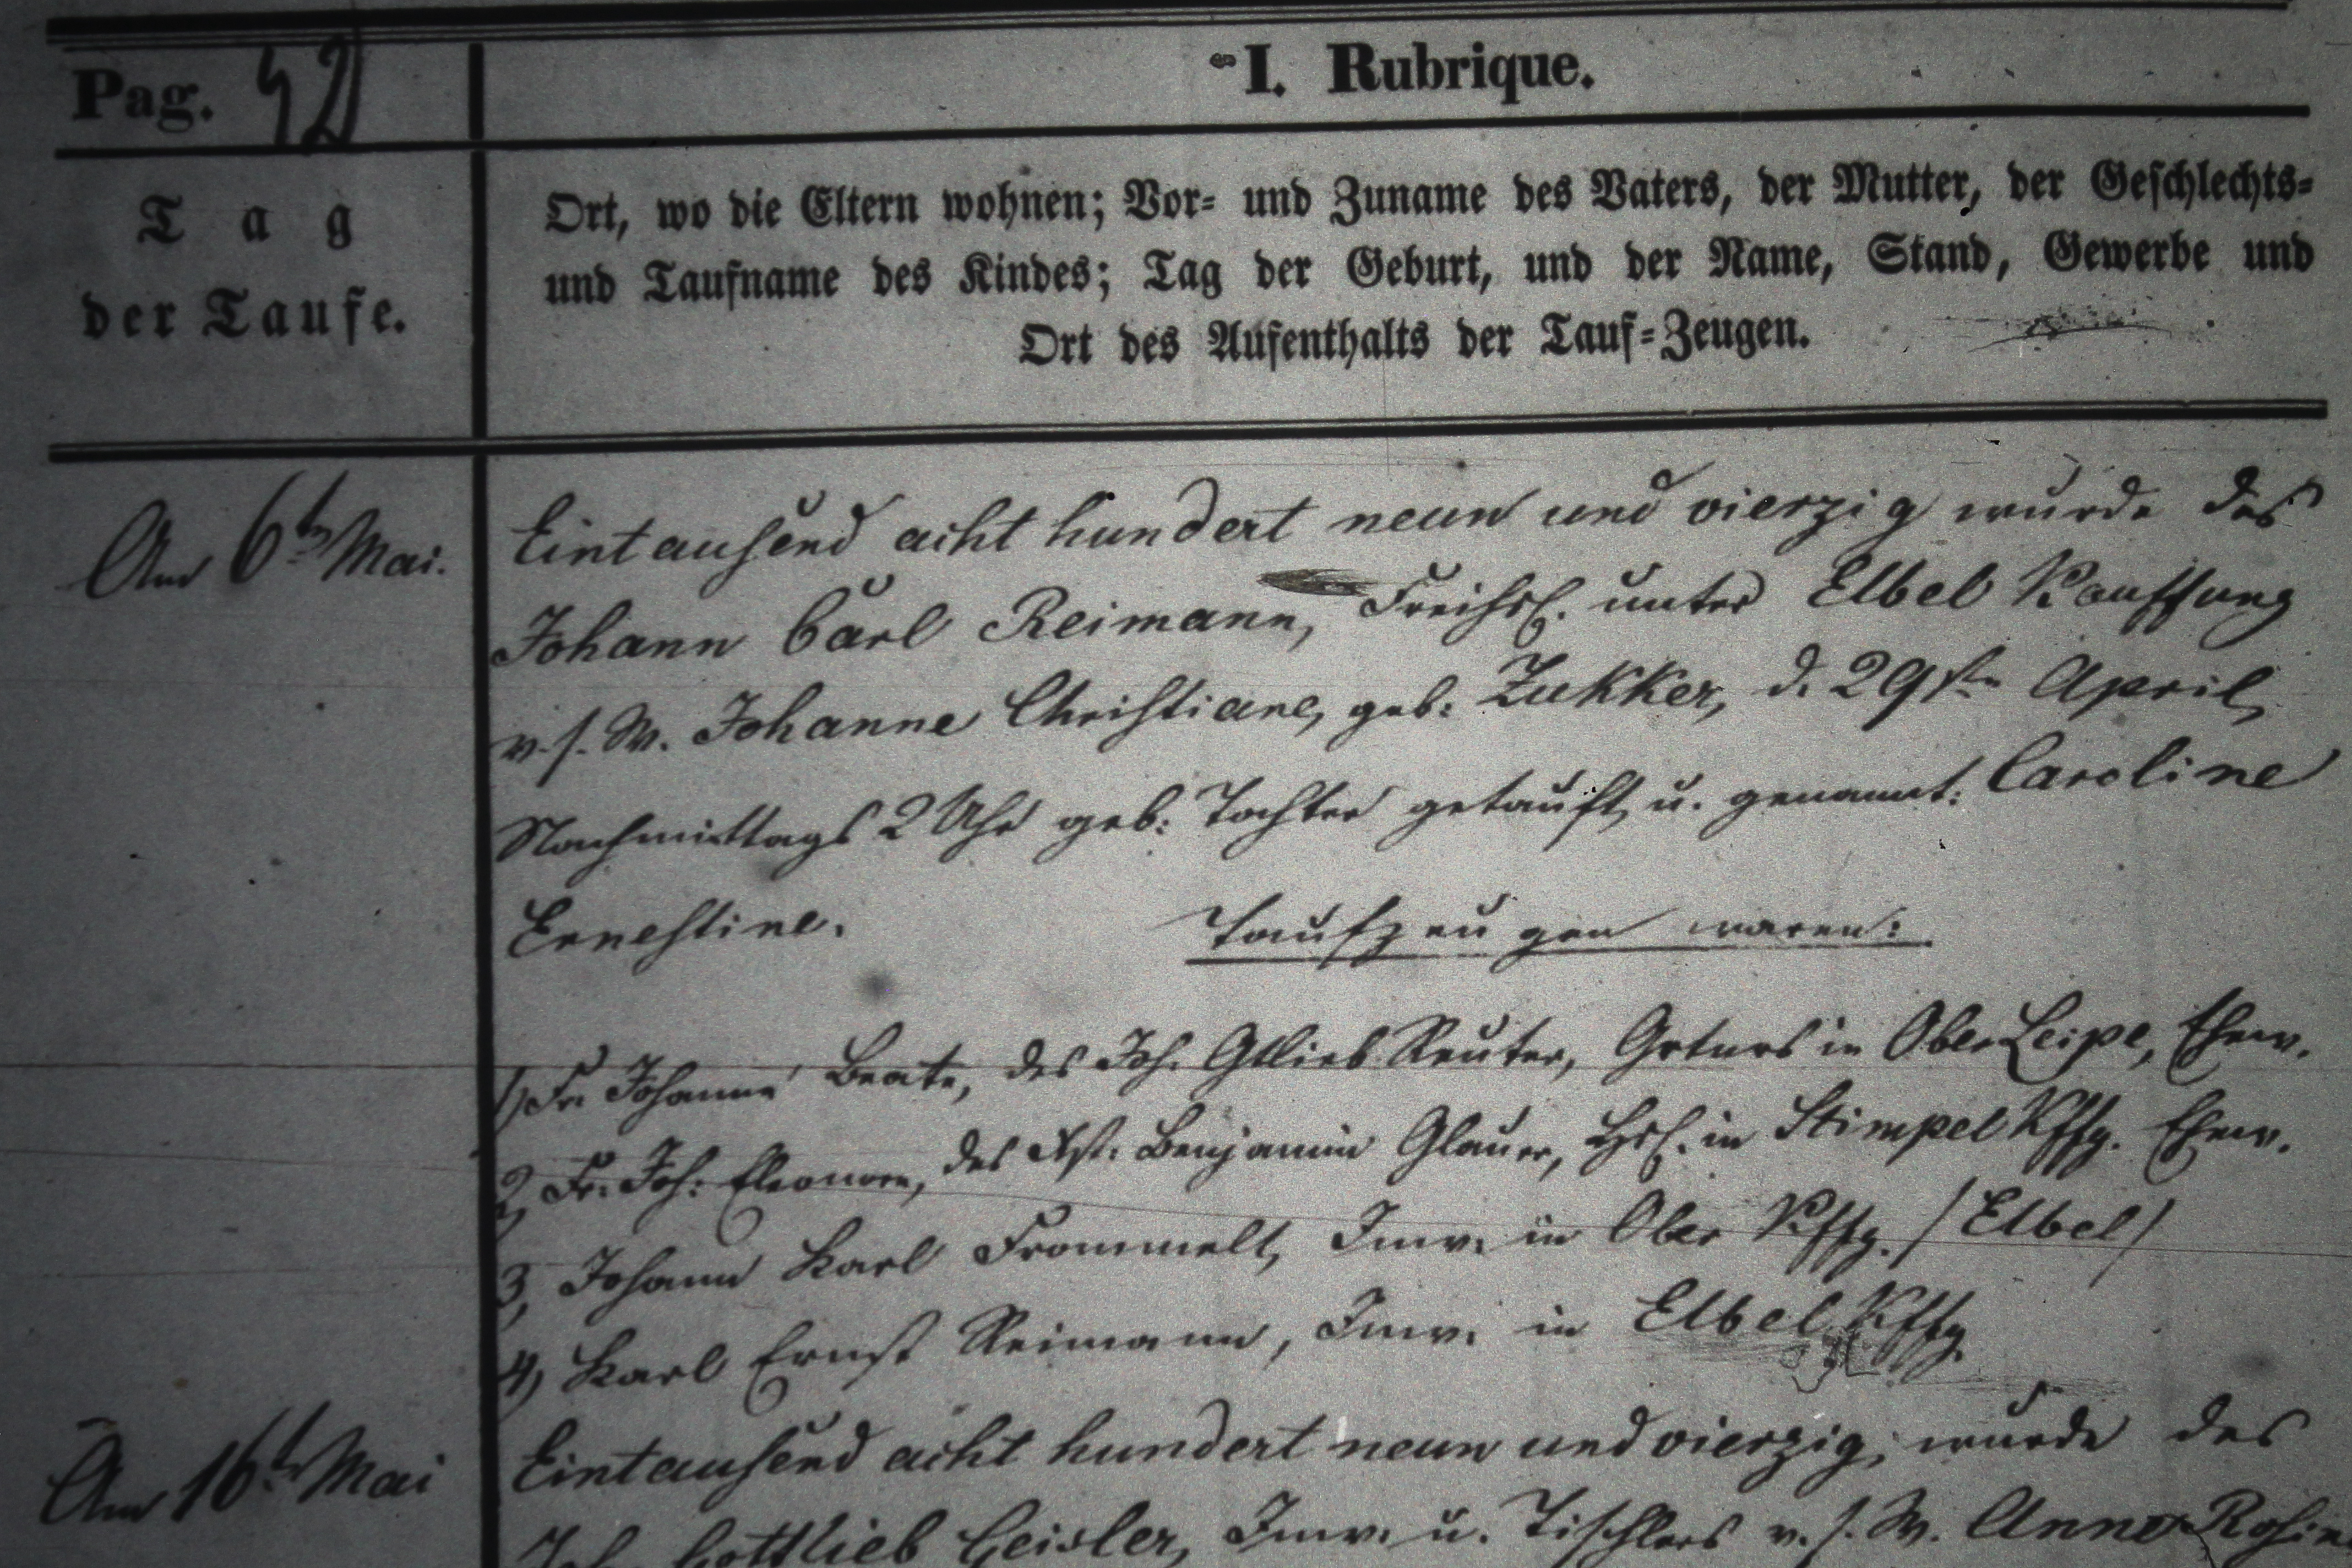 Pag. 42
I. Rubrique.
Tag
der Taufe.
Ort, wo die Eltern wohnen; Vor- und Zuname des Vaters, der Mutter, der Geschlechts-
und Taufname des Kindes; Tag der Geburt, und der Name, Stand, Gewerbe und
Ort des Aufenthalts der Tauf-Zeugen.
Am 6t Mai.
Eintausend acht hundert neun und vierzig wurde des
Johann Carl Reimann, Freihsl. unter Elbel Kauffung
v. s. W. Johanne Christiane, geb: Zukker, d. 29stn April,
Nachmittags 2 Uhr geb: Tochter getauft u. genannt: Caroline
Ernestine.
Taufzeugen waren:
1) Fr. Johanne Beate, des Joh. Gttlieb Reuter, Grtnrs in Ober Leipe, Ehew.
2, Fr. Joh: Eleonore, des Benjamin Glauer, Hsl. in Stimpel Kffg. Ehew.
3, Johann Karl Frommelt, Inw. in Ober Kffg. /Elbel/
4) Karl Ernst Reimann, Inw. in Elbel Kffg.
Am 16t Mai
Eintausend acht hundert neun und vierzig, wurde des
Joh. Gottlieb Geisler, Inw. u. Tischlers v. s. W. Anne Rosine